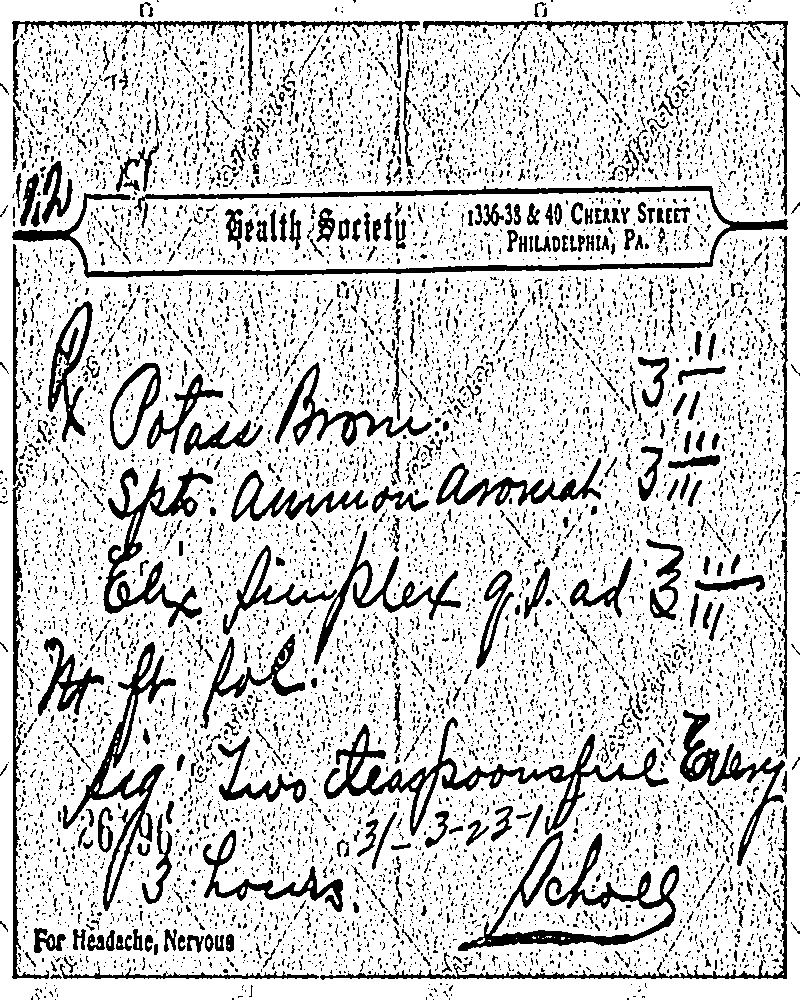 Health Society 1336-38 & 40 Cherry Street
Philadelphia, Pa.
Rx Potass Brom. ʒ ii
Spts. Ammon Aromat. ʒ iii
Elix Simplex q.s. ad ℥ iii
M ft sol.
Sig: Two teaspoonsful Every
26796
31-3-23-1
3 hours. Scholl
For Headache, Nervous